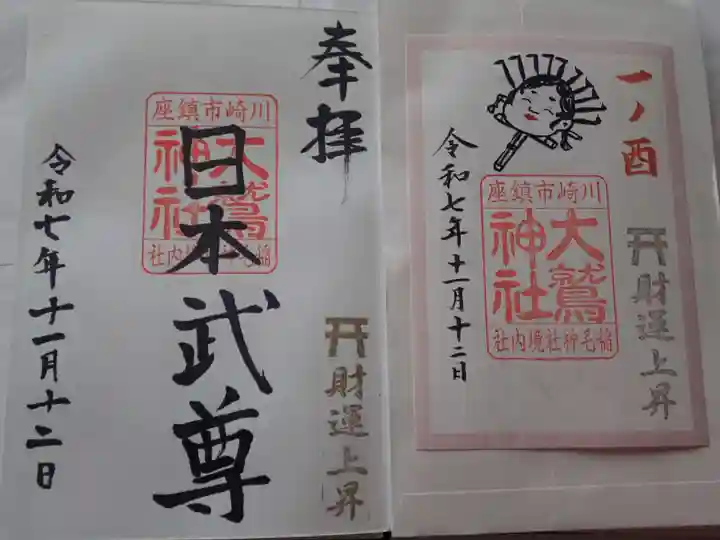 奉拝
川崎市鎮座
大鷲神社
稲毛神社境内社
日本武尊
令和七年十一月十二日
財運上昇
一ノ酉
川崎市鎮座
大鷲神社
稲毛神社境内社
令和七年十一月十二日
財運上昇